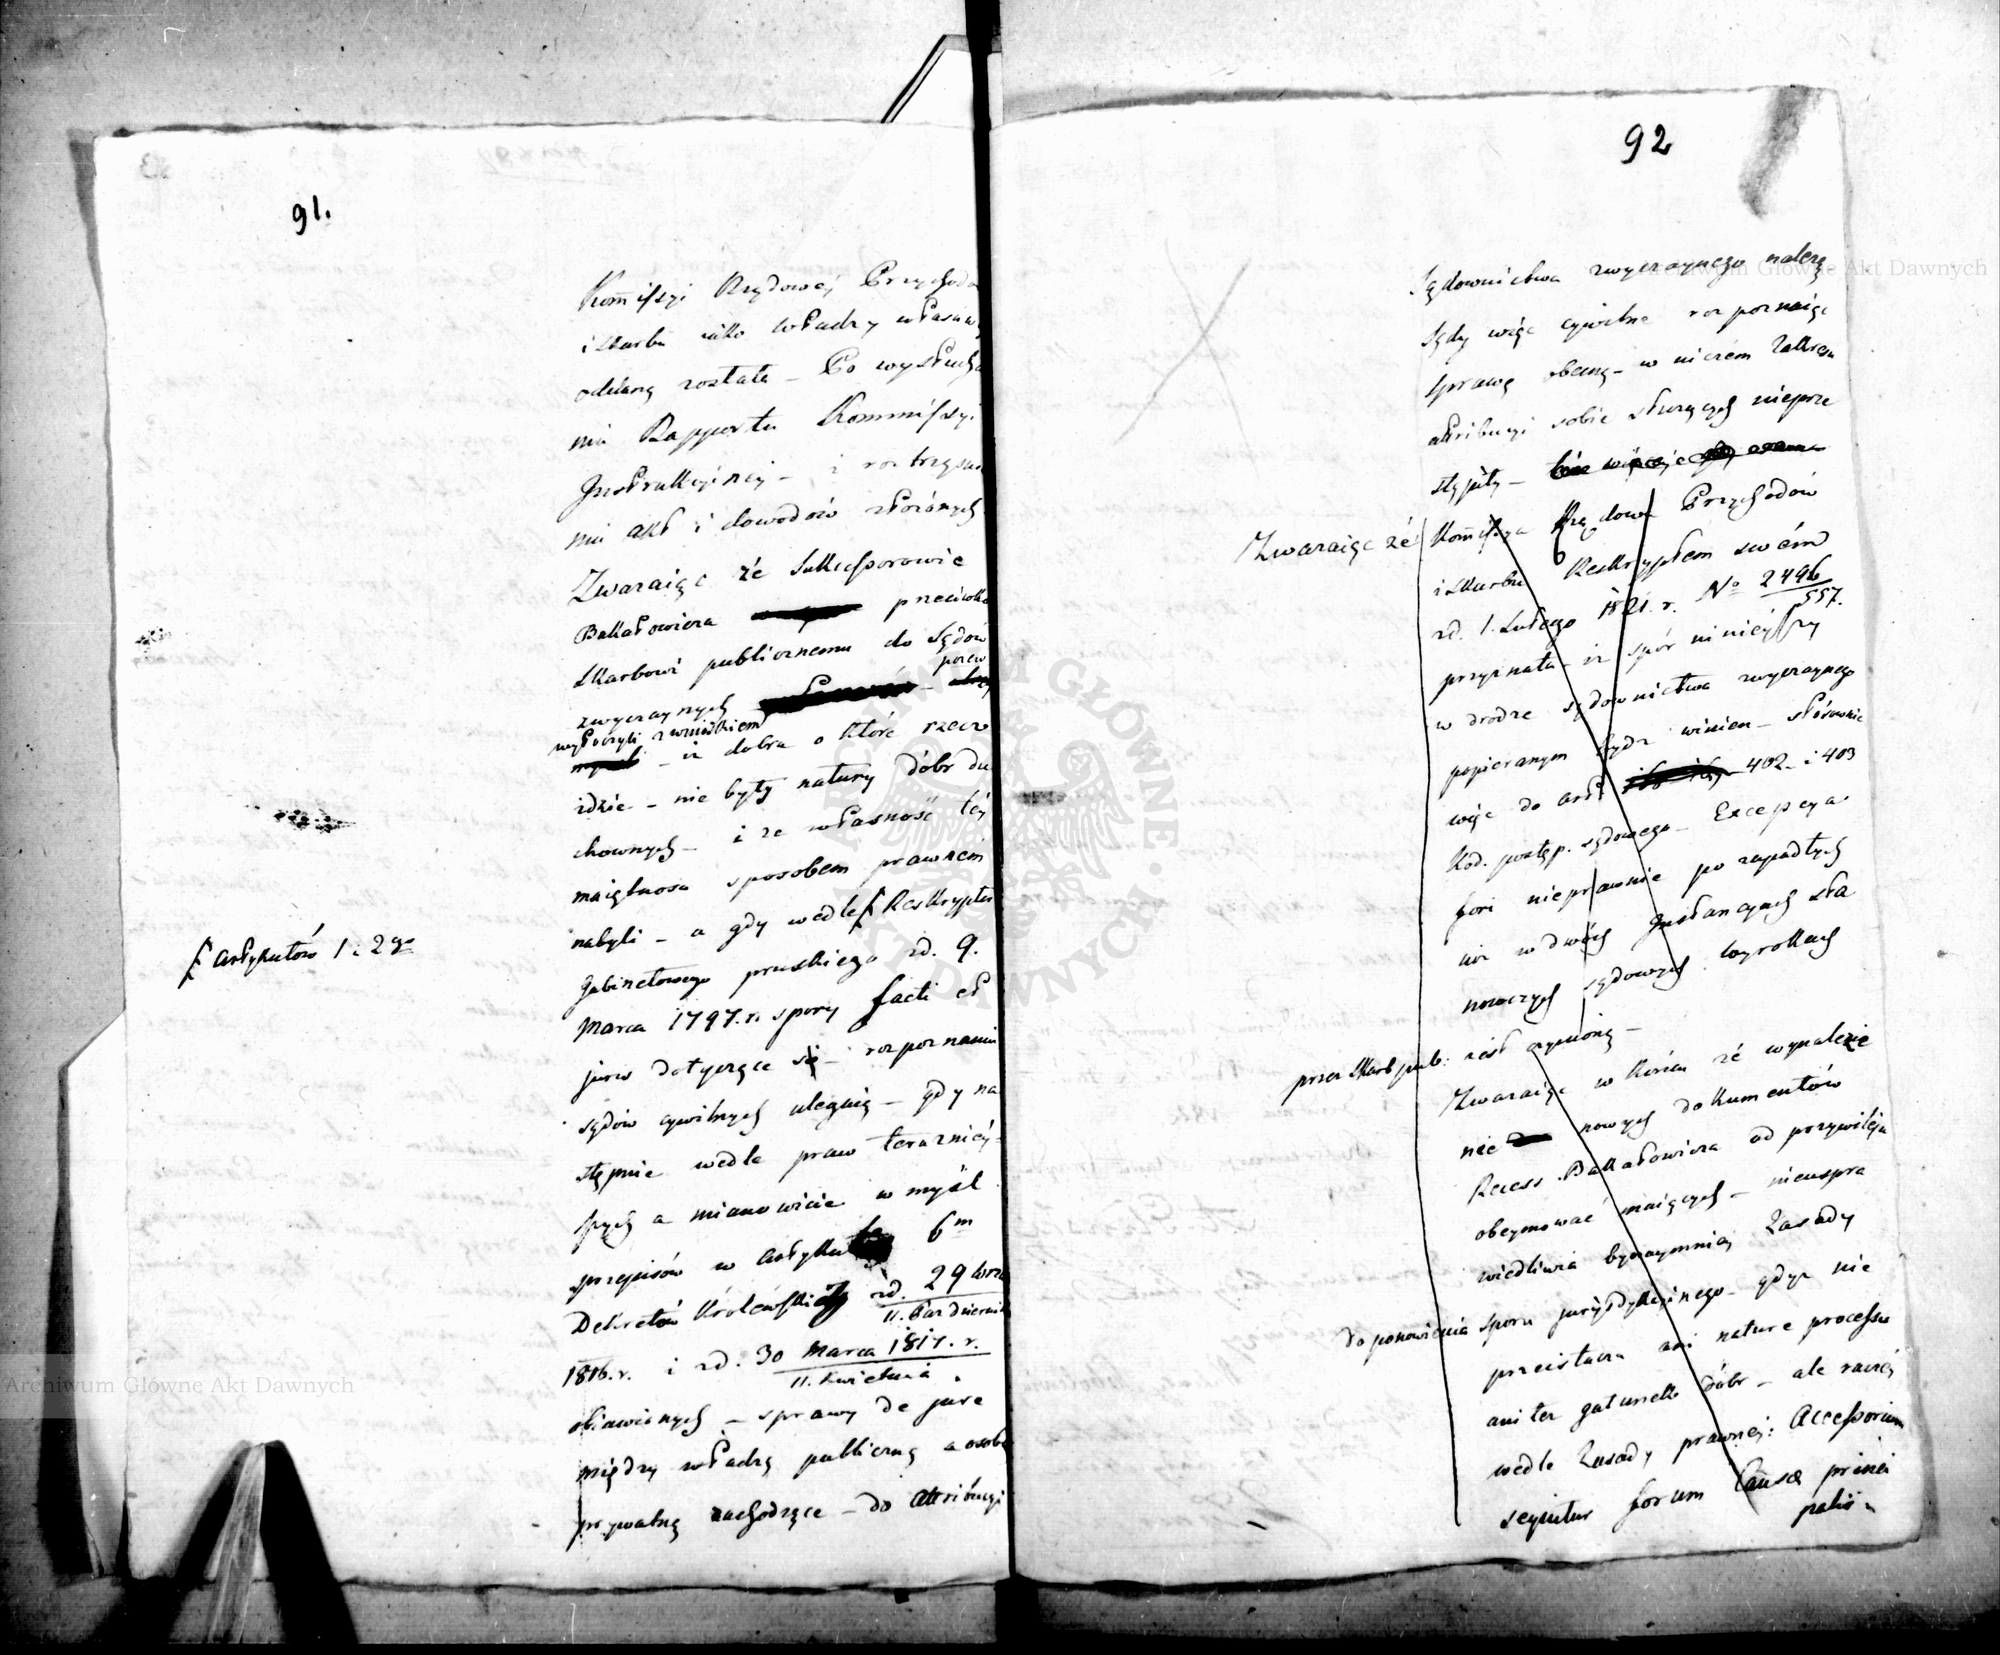 91.
Kom̄issyi Rządowéj Przychodó
i Skarbu iako władzy właściw
oddaną została – Po wysłucha
niu Rapportu Kommissyi
Instrukcyinéy – i roztrząsn
niu akt i dowodów złożonych
Zważaiąc że Sukcessorowie
Bakałowicza przeciwko
Skarbowi publicznemu do Sądów
pozew
zwyczaynych
wytoczyli z wnioskiem
– iż dobra o które rzecz
idzie – nie były natury dóbr du
chownych – i że własność téy
maiętności sposobem prawném
nabyli – a gdy wedle Reskryptu
[ artykułów 1 i 2go
Gabinetowego pruskiego zd. 9.
Marca 1797. r. spory facti et
juris dotyczące się rozpoznaniu
sądów cywilnych ulegaią – gdy na
stępnie wedle praw terazniey-
szych a mianowicie w myśl
przepisów w Artyku 6m
Dekretów Królewskich zd. 29 Wrze
11. Październik
1816. r. i zd. 30 Marca 1817. r.
11. Kwietnia
obiawionych – sprawy de jure
między władzą publiczną a osobą
prywatną zachodzące – do attribucyi
92
Sądownictwa zwyczaynego należą
Sądy więc cywilne rozpoznaiąc
Sprawę obecną – w niczém Zakresu
attribucyi sobie służących nieprze
stąpiły –
Zważaiąc że Kom̄issya Rządowa Przychodów
i Skarbu Reskryptem swém
zd. 1. Lutego 1821. r. No 2496/557.
przyznała – iż spór ninieyszy
w drodze sądownictwa zwyczaynego
popieranym bydź winien – stósownie
więc do art 402. i 403
Kod. postęp. sądowego – Excepcya
fori nieprawnie po zapadłych
już w dwóch Instancyach sta
nowczych sądowych wyrokach
przez Skarb pub: iest czynioną –
Zważaiąc w końcu że wynalezie
nie nowych dokumentów
Recess Bakałowicza od przywileju
obeymować maiących – nieuspra
wiedliwia bynaymniéy Zasady
do ponowienia sporu juryzdykcyinego – gdyż nie
przeistacza ani nature processu
ani też gatunek dóbr – ale raczéj
wedle Zasady prawnéj: Accessorium
sequitur forum Causæ princi
palis.
Archiwum Główne Akt Dawnych
Archiwum Główne Akt Dawnych
ARCHIWUM GŁÓWNE AKT DAWNYCH